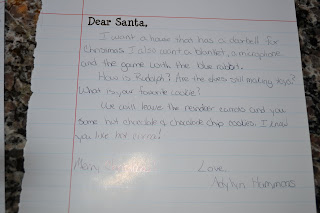 Dear Santa,
I want a house that has a doorbell for
Christmas. I also want a blanket, a microphone
and the game with the blue rabbit.
How is Rudolph? Are the elves still making toys?
What is your favorite cookie?
We will leave the reindeer carrots and you
some hot chocolate & chocolate chip cookies. I know
you like hot cocoa!
Merry Christmas
Love,
Hammons